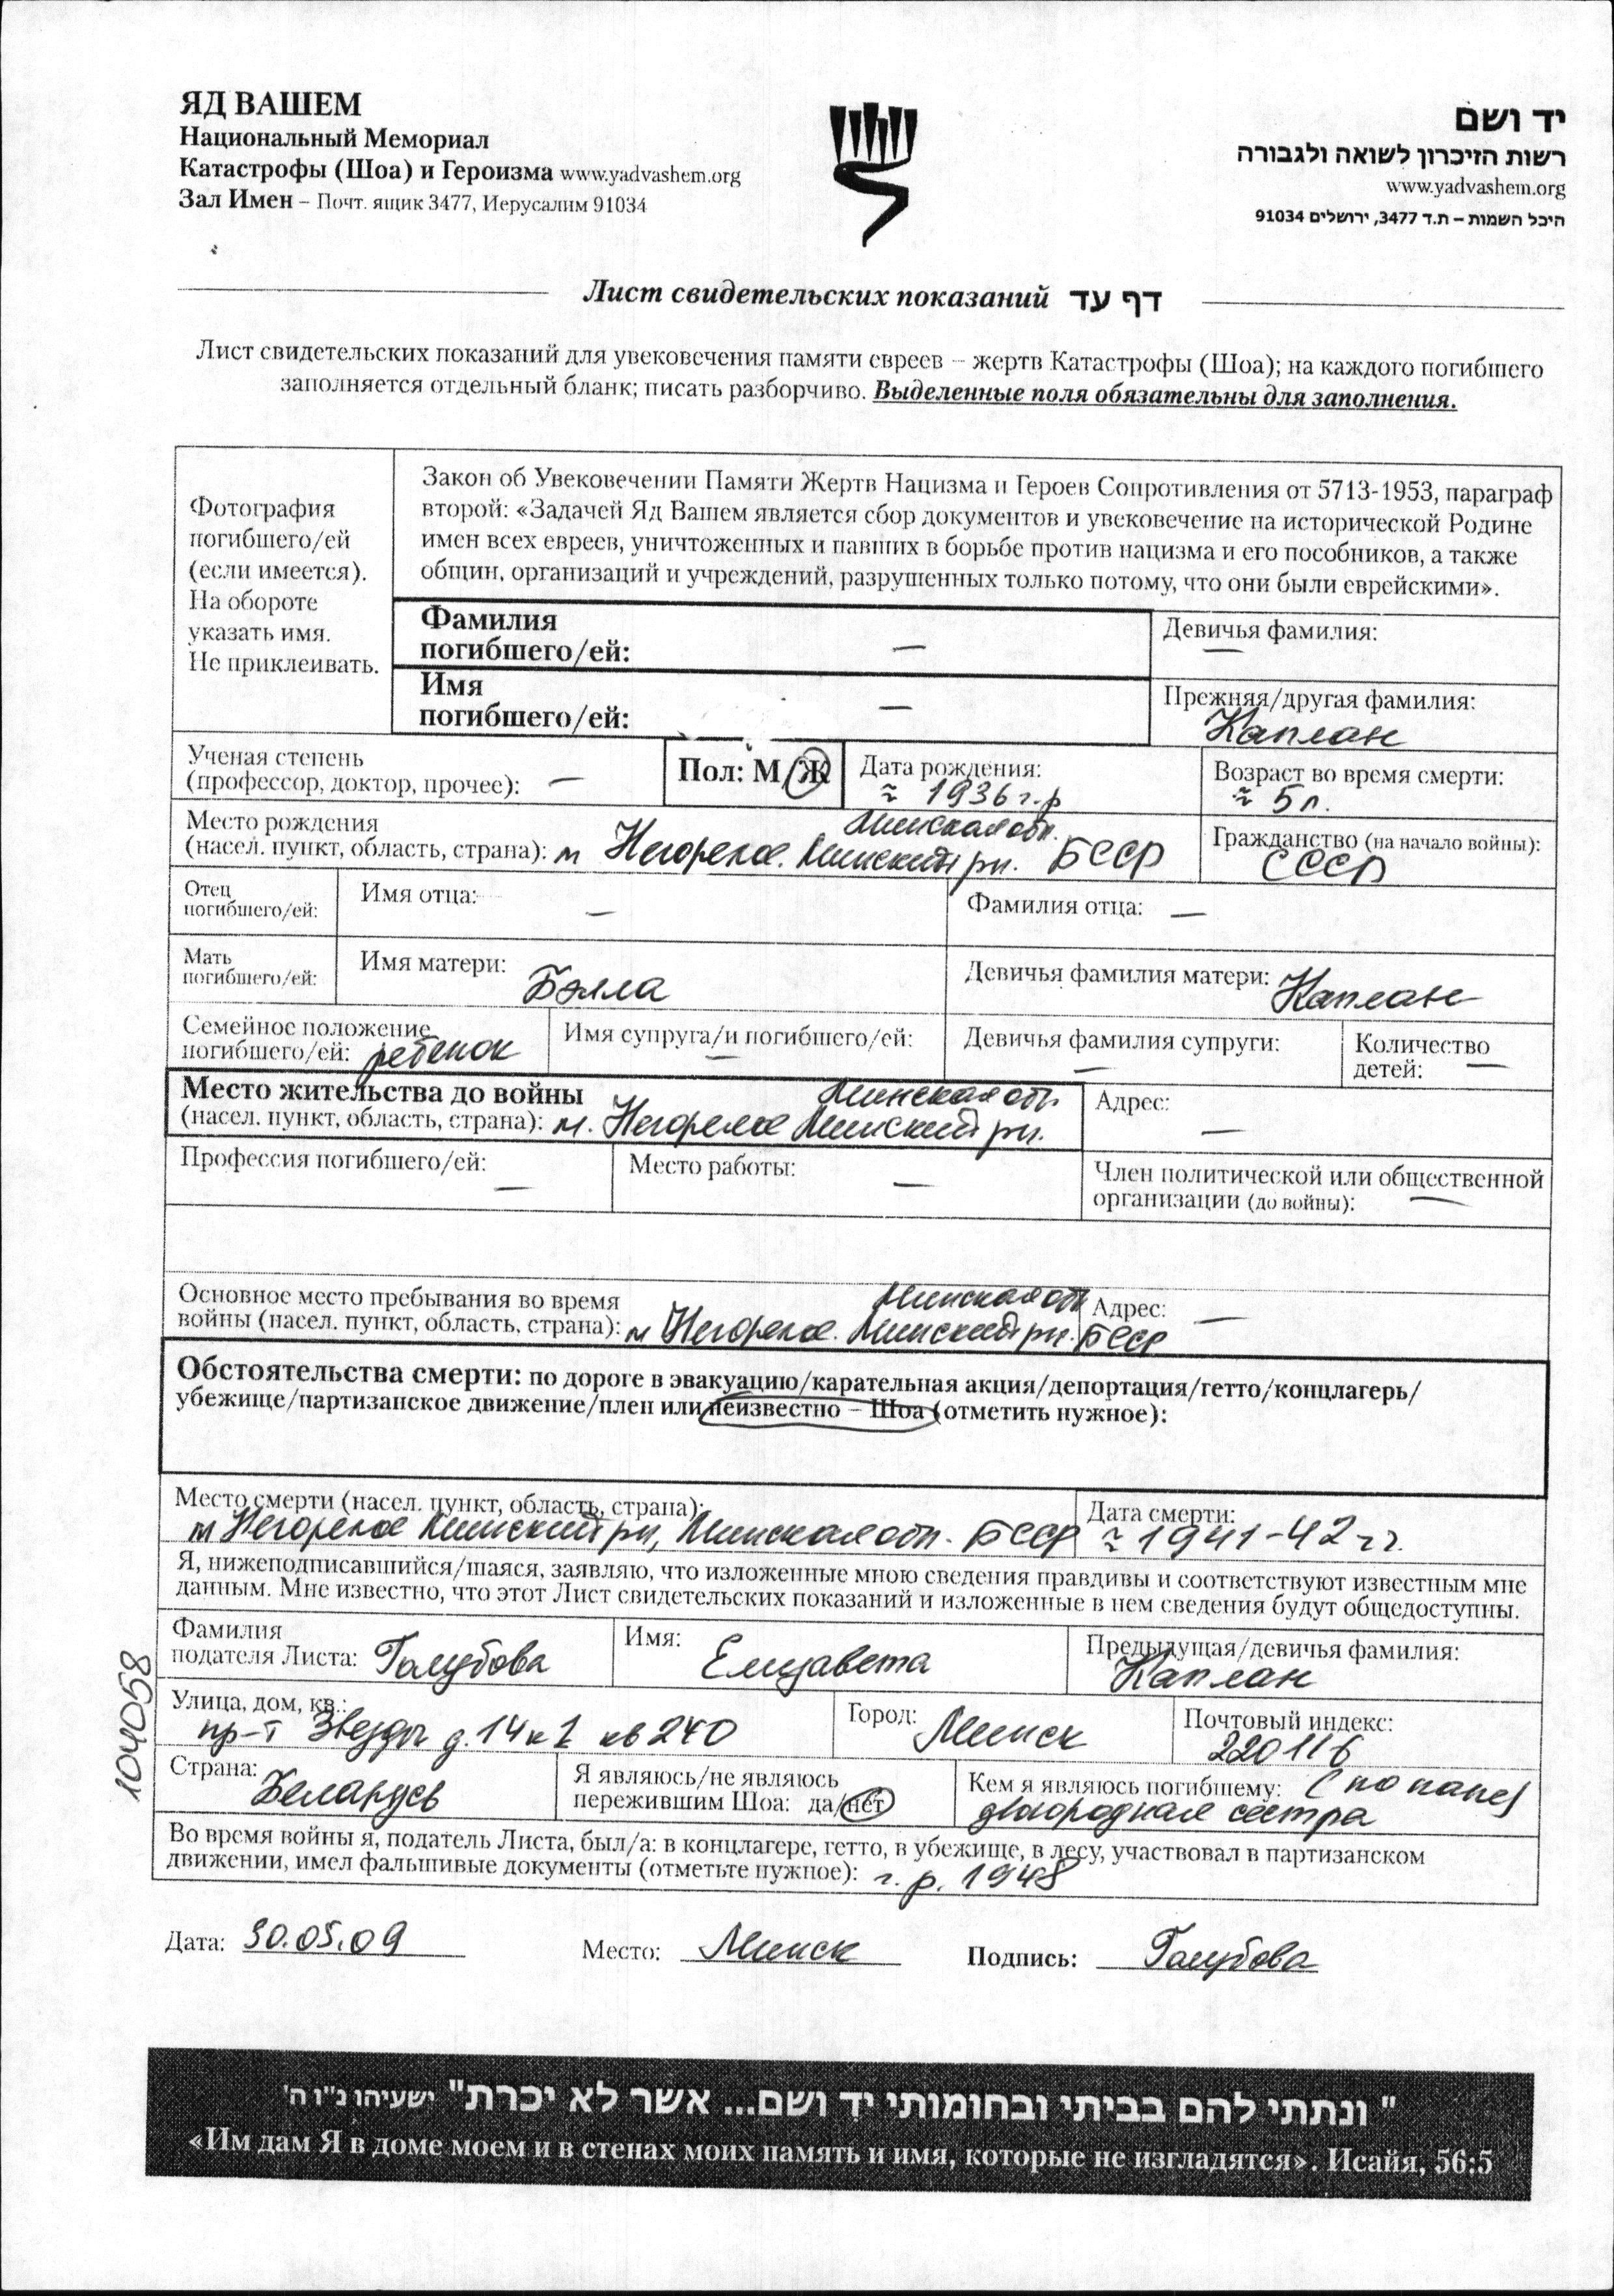 ЯД ВАШЕМ
Национальный Мемориал
Катастрофы (Шоа) и Героизма www.yadvashem.org
Зал Имен – Почт. ящик 3477, Иерусалим 91034
יד ושם
רשות הזיכרון לשואה ולגבורה
www.yadvashem.org
היכל השמות – ת.ד 3477, ירושלים 91034
Лист свидетельских показаний דף עד
Лист свидетельских показаний для увековечения памяти евреев – жертв Катастрофы (Шоа); на каждого погибшего
заполняется отдельный бланк; писать разборчиво. Выделенные поля обязательны для заполнения.
Фотография
погибшего/ей
(если имеется).
На обороте
указать имя.
Не приклеивать.
Закон об Увековечении Памяти Жертв Нацизма и Героев Сопротивления от 5713-1953, параграф
второй: «Задачей Яд Вашем является сбор документов и увековечение на исторической Родине
имен всех евреев, уничтоженных и павших в борьбе против нацизма и его пособников, а также
общин, организаций и учреждений, разрушенных только потому, что они были еврейскими».
Фамилия
погибшего/ей: —
Девичья фамилия:
—
Имя
погибшего/ей: —
Прежняя/другая фамилия:
Каплан
Ученая степень
(профессор, доктор, прочее): —
Пол: М/Ж
Дата рождения:
≈ 1936 г.р
Возраст во время смерти:
≈ 5 л.
Место рождения Минская обл.
(насел. пункт, область, страна): м Негорелое. Минский рн. БССР
Гражданство (на начало войны):
СССР
Отец
погибшего/ей:
Имя отца: —
Фамилия отца: —
Мать
погибшего/ей:
Имя матери:
Бэлла
Девичья фамилия матери: Каплан
Семейное положение
погибшего/ей: ребенок
Имя супруга/и погибшего/ей:
—
Девичья фамилия супруги:
—
Количество
детей: —
Место жительства до войны Минская обл.
(насел. пункт, область, страна): м. Негорелое Минский рн.
Адрес:
—
Профессия погибшего/ей:
—
Место работы:
—
Член политической или общественной
организации (до войны): —
Основное место пребывания во время Минская обл
войны (насел. пункт, область, страна): м Негорелое. Минский рн. БССР
Адрес: —
Обстоятельства смерти: по дороге в эвакуацию/карательная акция/депортация/гетто/концлагерь/
убежище/партизанское движение/плен или неизвестно – Шоа (отметить нужное):
Место смерти (насел. пункт, область, страна):
м Негорелое Минский рн, Минская обл. БССР
Дата смерти:
≈ 1941-42 гг.
Я, нижеподписавшийся/шаяся, заявляю, что изложенные мною сведения правдивы и соответствуют известным мне
данным. Мне известно, что этот Лист свидетельских показаний и изложенные в нем сведения будут общедоступны.
Фамилия
подателя Листа: Голубова
Имя:
Елизавета
Предыдущая/девичья фамилия:
Каплан
Улица, дом, кв.:
пр-т Звезды д. 14 к 1 кв 240
Город:
Минск
Почтовый индекс:
220116
Страна:
Беларусь
Я являюсь/не являюсь
пережившим Шоа: да/нет
Кем я являюсь погибшему: (по папе)
двоюродная сестра
Во время войны я, податель Листа, был/а: в концлагере, гетто, в убежище, в лесу, участвовал в партизанском
движении, имел фальшивые документы (отметьте нужное): г. р. 1948
1040058
Дата: 30.05.09
Место: Минск
Подпись: Голубова
" ונתתי להם בביתי ובחומותי יד ושם... אשר לא יכרת" ישעיהו נ"ו ה'
«Им дам Я в доме моем и в стенах моих память и имя, которые не изгладятся». Исайя, 56:5